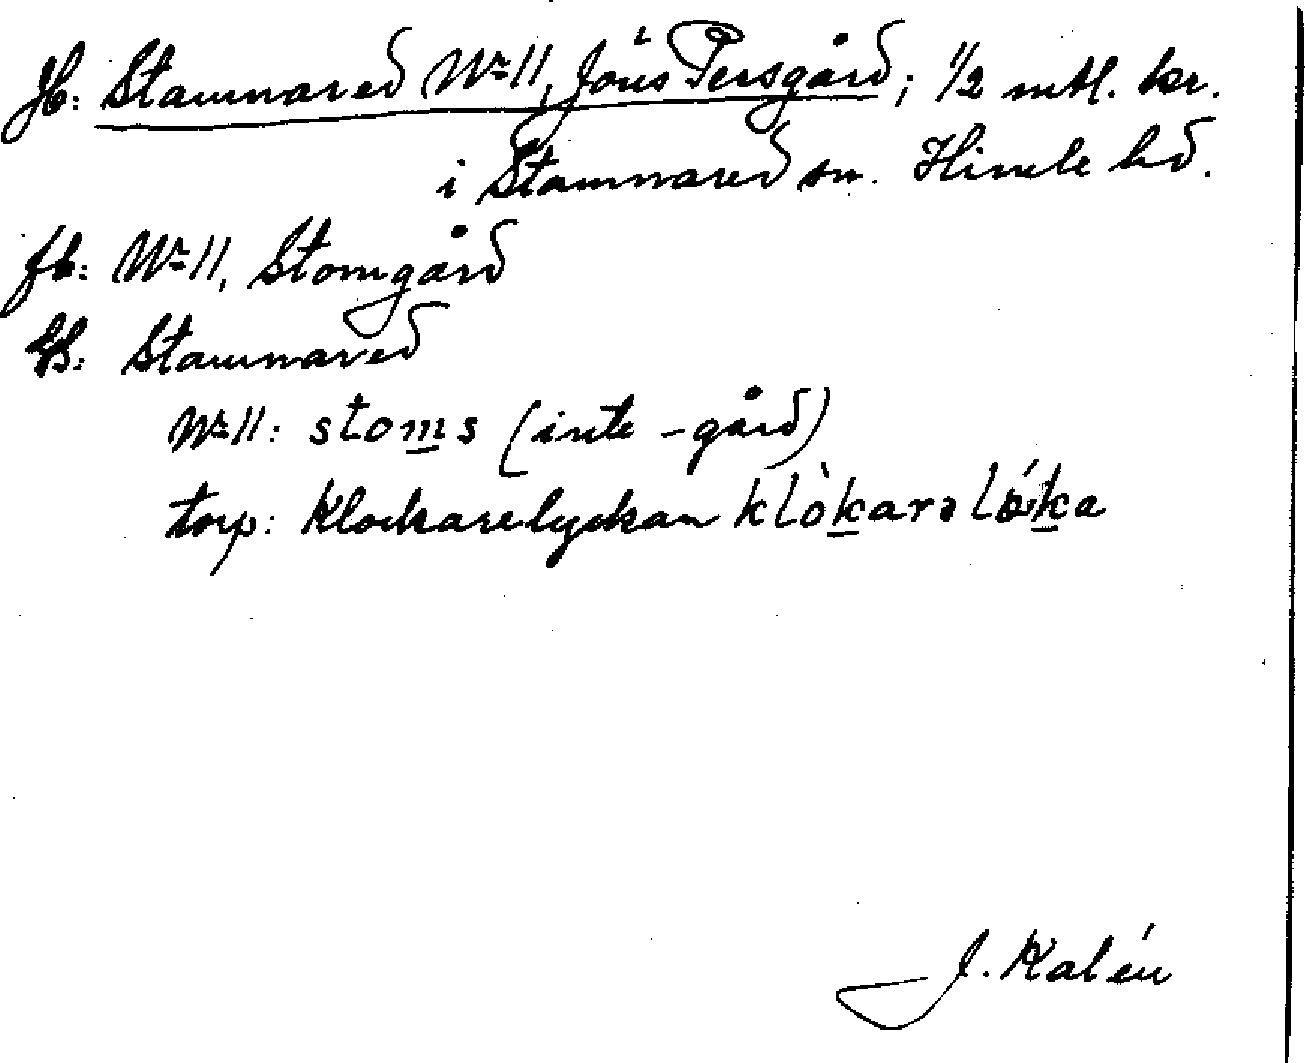 Jb: Stamnared Nr 11, Jöns Persgård; 1/2 mtl. kr.
i Stamnared sn. Himle hd.
fb: Nr 11, Stomgård
Stamnared
Nr 11: stoms (inte -gård)
torp: Klockarelyckan klòkarə lǿka
J. Kalén